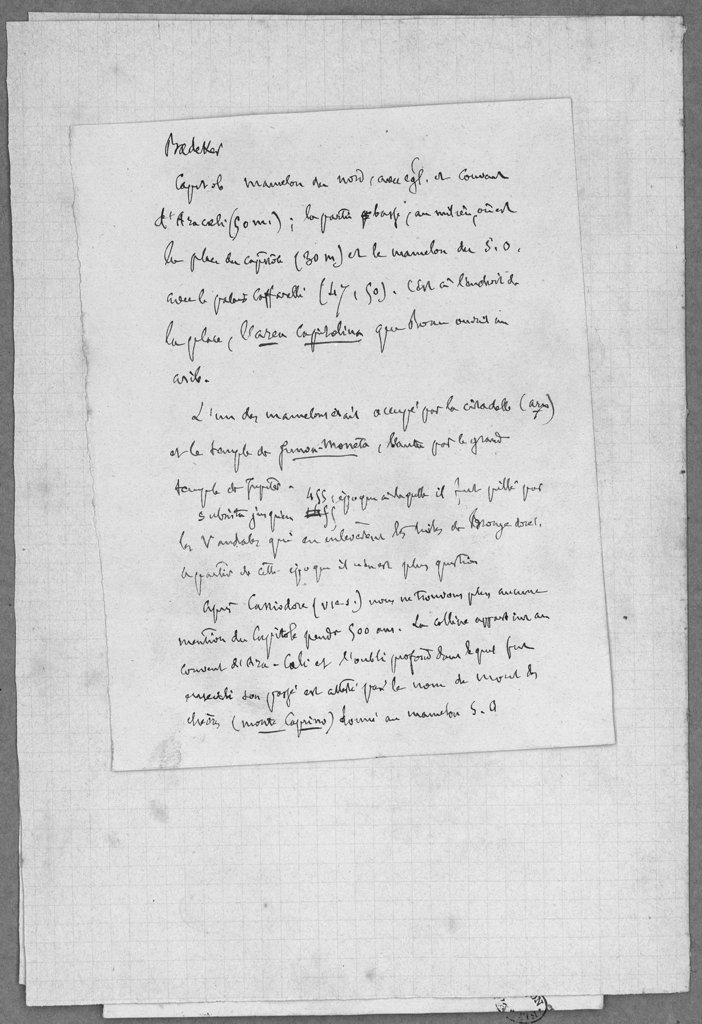 Bædeker
Capitole mamelon du nord, avec égl. et couvent
d'Aracœli (50 m.) ; la partie basse, au milieu, où est
la place du capitole (30 m) et le mamelon du S. O.
avec le palais Caffarelli (47, 50). C'est à l'endroit de
la place, l'area Capitolina que Rom ouvrit un
asile.
L'un des mamelons était occupé par la citadelle (arx)
et le temple de Junon-Moneta, l'autre par le grand
temple de Jupiter.
subsista jusqu'en 455, époque à laquelle il fut pillé par
les Vandales qui en enlevèrent les tuiles de Bronze doré.
a partir de cette époque il n'en est plus question
après Cassiodore (VIe s.) nous ne trouvons plus aucune
mention du Capitole pendt 500 ans. La colline appartint au
couvent d'Ara-Cœli et l'oubli profond dans lequel fut
enseveli son passé est attesté par le nom de mont des
chèvres (monte Caprino) donné au mamelon S. O